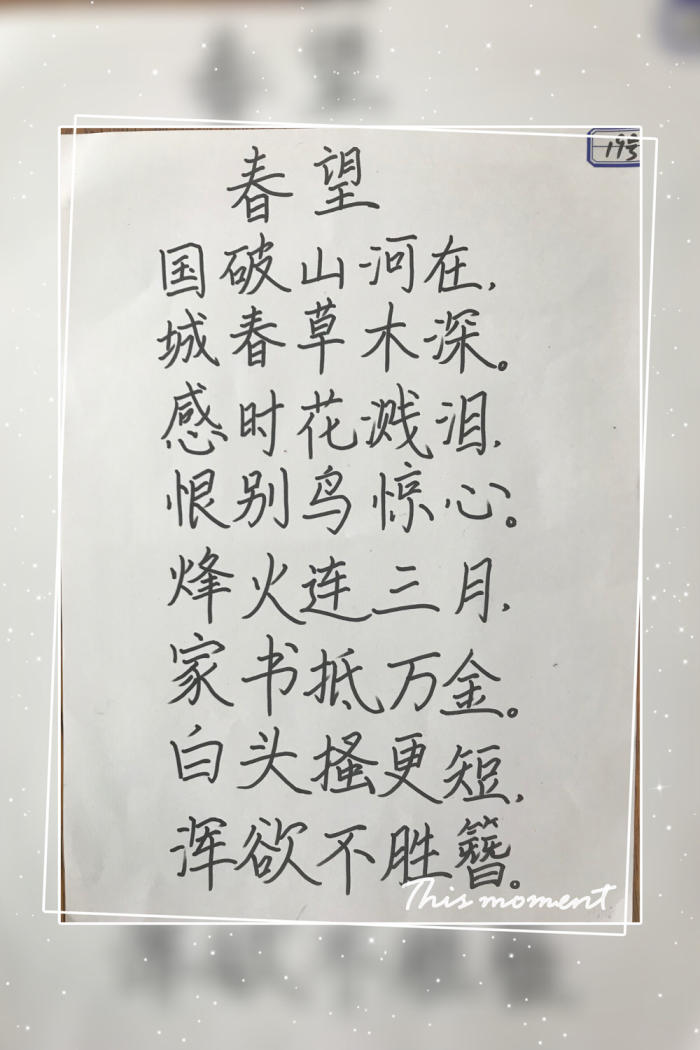 19号
春望
国破山河在,
城春草木深。
感时花溅泪,
恨别鸟惊心。
烽火连三月,
家书抵万金。
白头搔更短,
浑欲不胜簪。
This moment